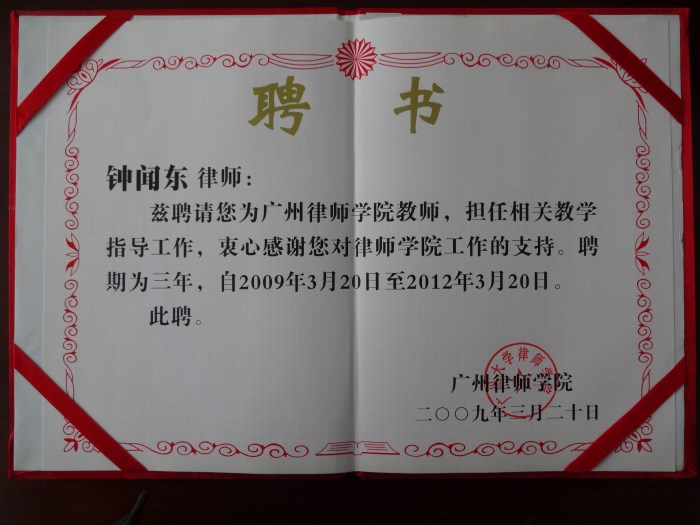 聘 书
钟闻东 律师：
兹聘请您为广州律师学院教师，担任相关教学
指导工作，衷心感谢您对律师学院工作的支持。聘
期为三年，自2009年3月20日至2012年3月20日。
此聘。
大学律师学院
广州律师学院
二〇〇九年三月二十日